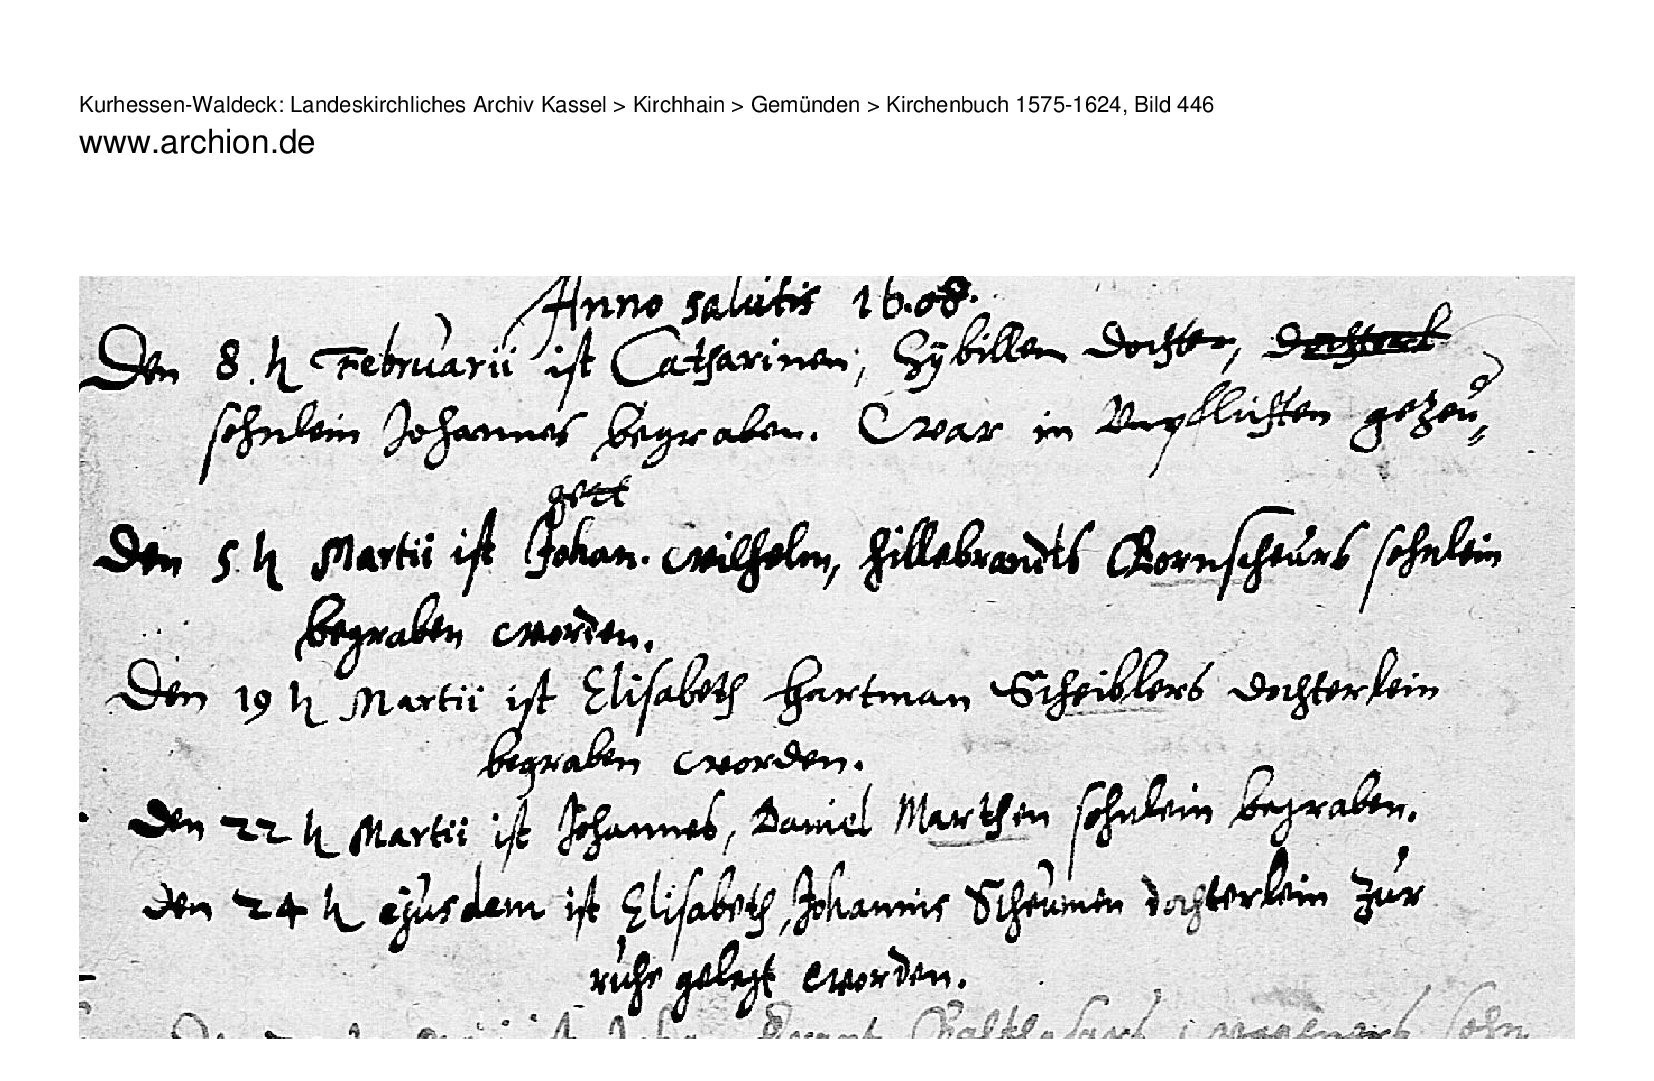 Kurhessen-Waldeck: Landeskirchliches Archiv Kassel > Kirchhain > Gemünden > Kirchenbuch 1575-1624, Bild 446
www.archion.de
Anno salutis 16.08.
Den 8. h Februarii ist Catharinen, Sÿbillen dochter,
söhnlein Johannes begraben. War in Unpflichten gezeu„
get
Den 5 h Martii ist Johan. Wilhelm, Hillebrandts Bornscheurs söhnlein
begraben worden.
Den 19 h Martii ist Elisabeth Hartman Scheiblers dochterlein
begraben worden.
Den 22 h Martii ist Johannes, Daniel Marthen söhnlein begraben.
Den 24 h ejusdem ist Elisabeth, Johannis Scheumen dochterlein zur
ruhe gelegt worden.